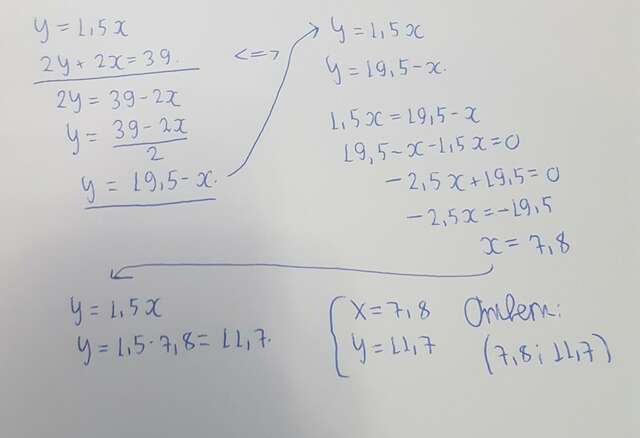 y = 1,5x
2y + 2x = 39.
2y = 39 - 2x
y = \frac{39 - 2x}{2}
y = 19,5 - x.
<=>
y = 1,5x
y = 19,5 - x.
1,5x = 19,5 - x
19,5 - x - 1,5x = 0
-2,5x + 19,5 = 0
-2,5x = -19,5
x = 7,8
y = 1,5x
y = 1,5 · 7,8 = 11,7.
{ x = 7,8
y = 11,7
Ответ:
(7,8; 11,7)